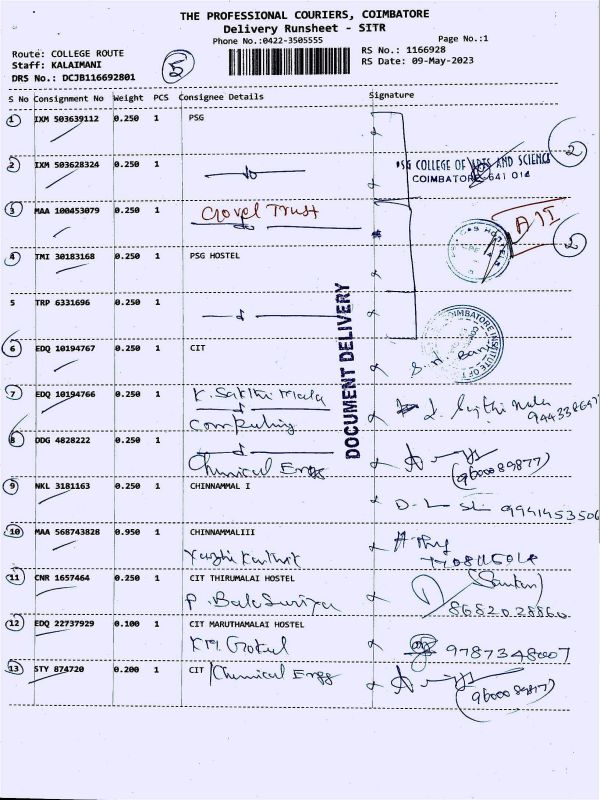 THE PROFESSIONAL COURIERS, COIMBATORE
Delivery Runsheet - SITR
Phone No.:0422-3505555
Page No.:1
Route: COLLEGE ROUTE
Staff: KALAIMANI
DRS No.: DCJB116692801
5
RS No.: 1166928
RS Date: 09-May-2023
S No Consignment No Weight PCS Consignee Details Signature
1 IXM 503639112 0.250 1 PSG
2 IXM 503628324 0.250 1
PSG COLLEGE OF ARTS AND SCIENCE
COIMBATORE 641 014
2
3 MAA 100453079 0.250 1 Govel Trust
AII
2
4 TMI 30183168 0.250 1 PSG HOSTEL
5 TRP 6331696 0.250 1
DOCUMENT DELIVERY
6 EDQ 10194767 0.250 1 CIT
7 EDQ 10194766 0.250 1 K. Sakthi Mala
Computing
8 DDG 4828222 0.250 1
Chemical Engg
(9600089877)
9 NKL 3181163 0.250 1 CHINNAMMAL I
10 MAA 568743828 0.950 1 CHINNAMALIII
11 CNR 1657464 0.250 1 CIT THIRUMALAI HOSTEL
P. Bala Suriya
8682028860
12 EDQ 22737929 0.100 1 CIT MARUTHAMALAI HOSTEL
KM. Gokul
9787348007
13 STY 874720 0.200 1 CIT / Chemical Engg